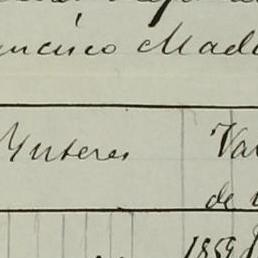 ncisco Mad
Ynteres Va
de
1859